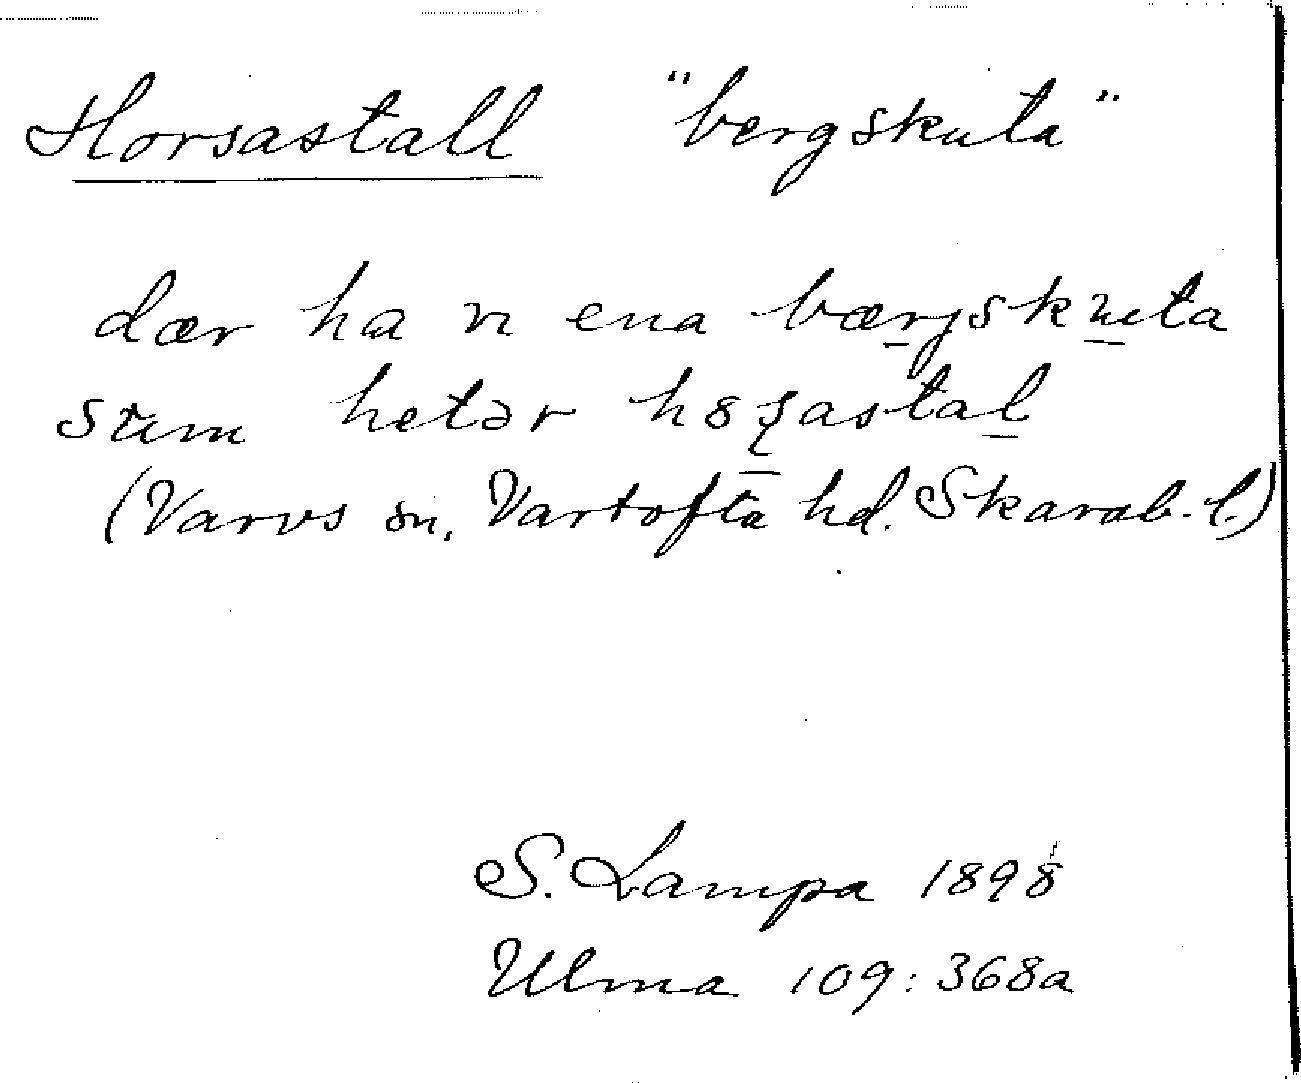 Horsastall "bergskuta"
dær ha vi ena bærjskuta
sum hetər h8ʂastal
(Varvs sn, Vartofta hd. Skarab. l.)
S. Lampa 1898
Ulma 109:368a